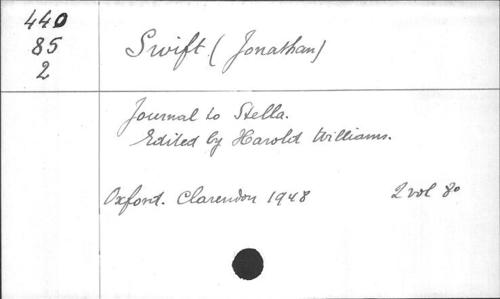 440
85
2
Swift (Jonathan)
Journal to Stella.
Edited by Harold Williams.
Oxford. Clarendon 1948 2 vol 8o